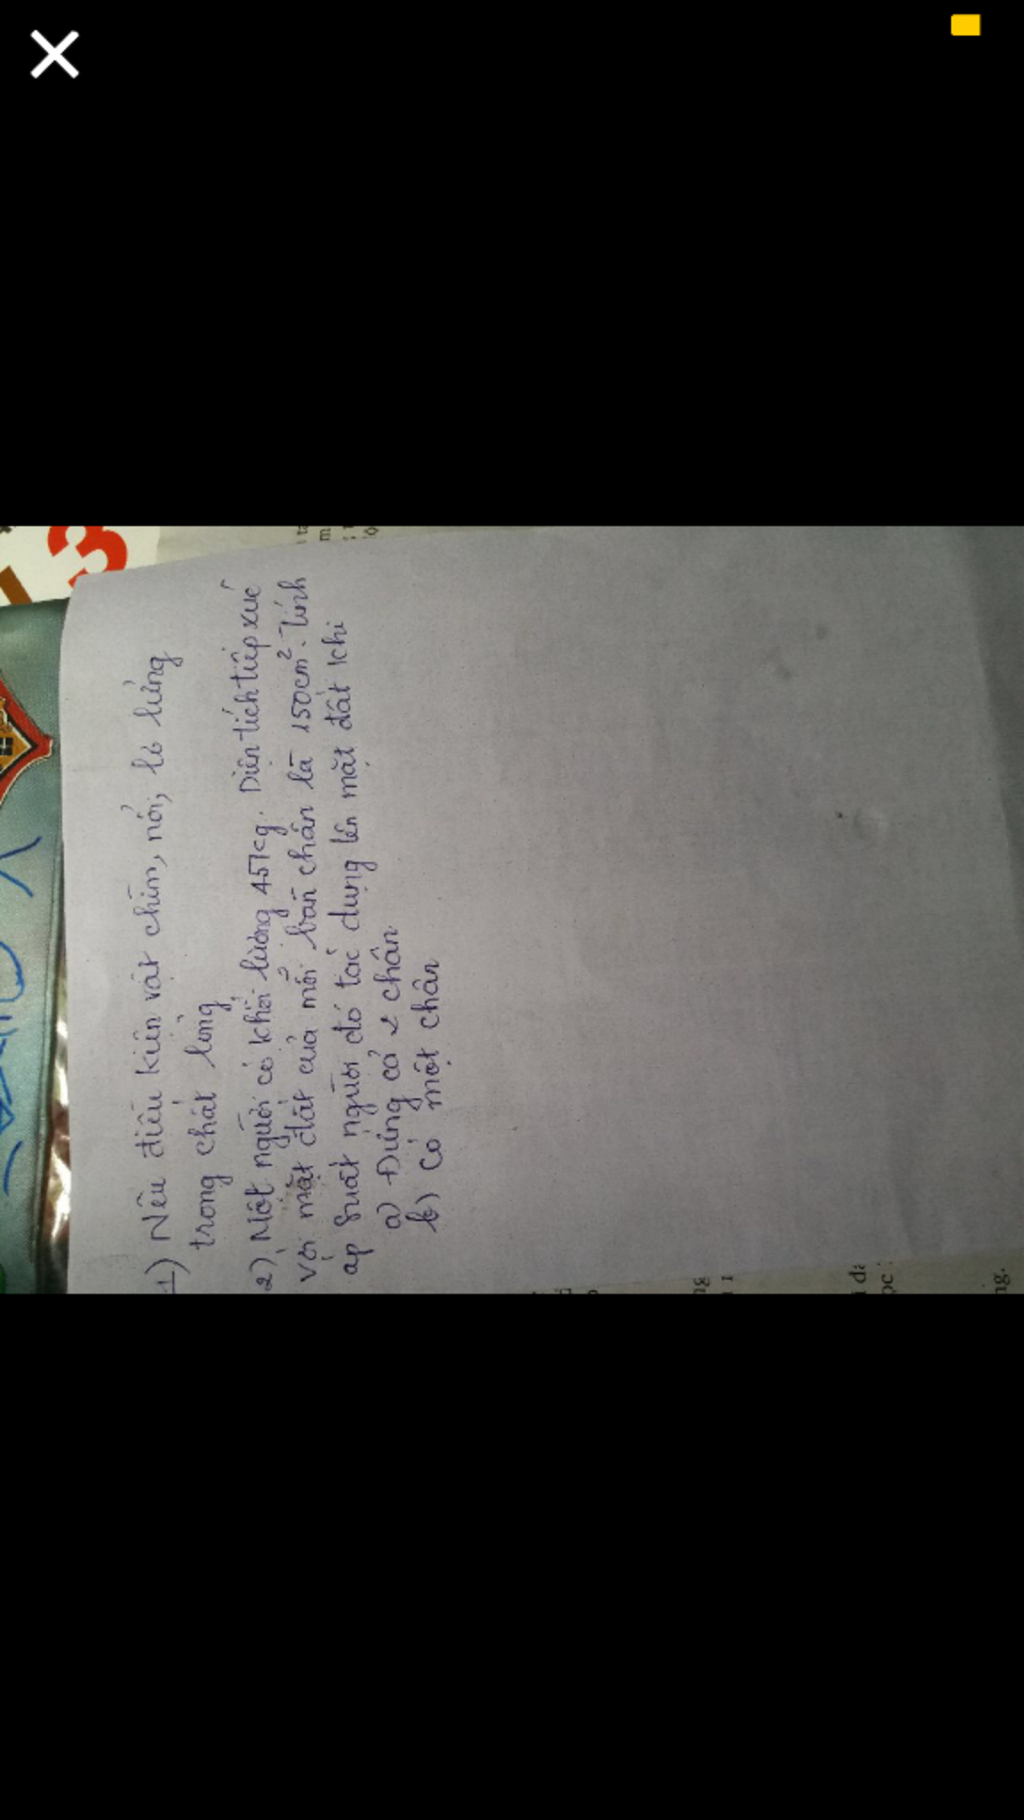 1) Nêu điều kiện vật chìm, nổi, lơ lửng
trong chất lỏng
2) Một người có khối lượng 45kg. Diện tích tiếp xúc
với mặt đất của mỗi bàn chân là 150cm². Tính
áp suất người đó tác dụng lên mặt đất khi
a) Đứng cả 2 chân
b) Có một chân